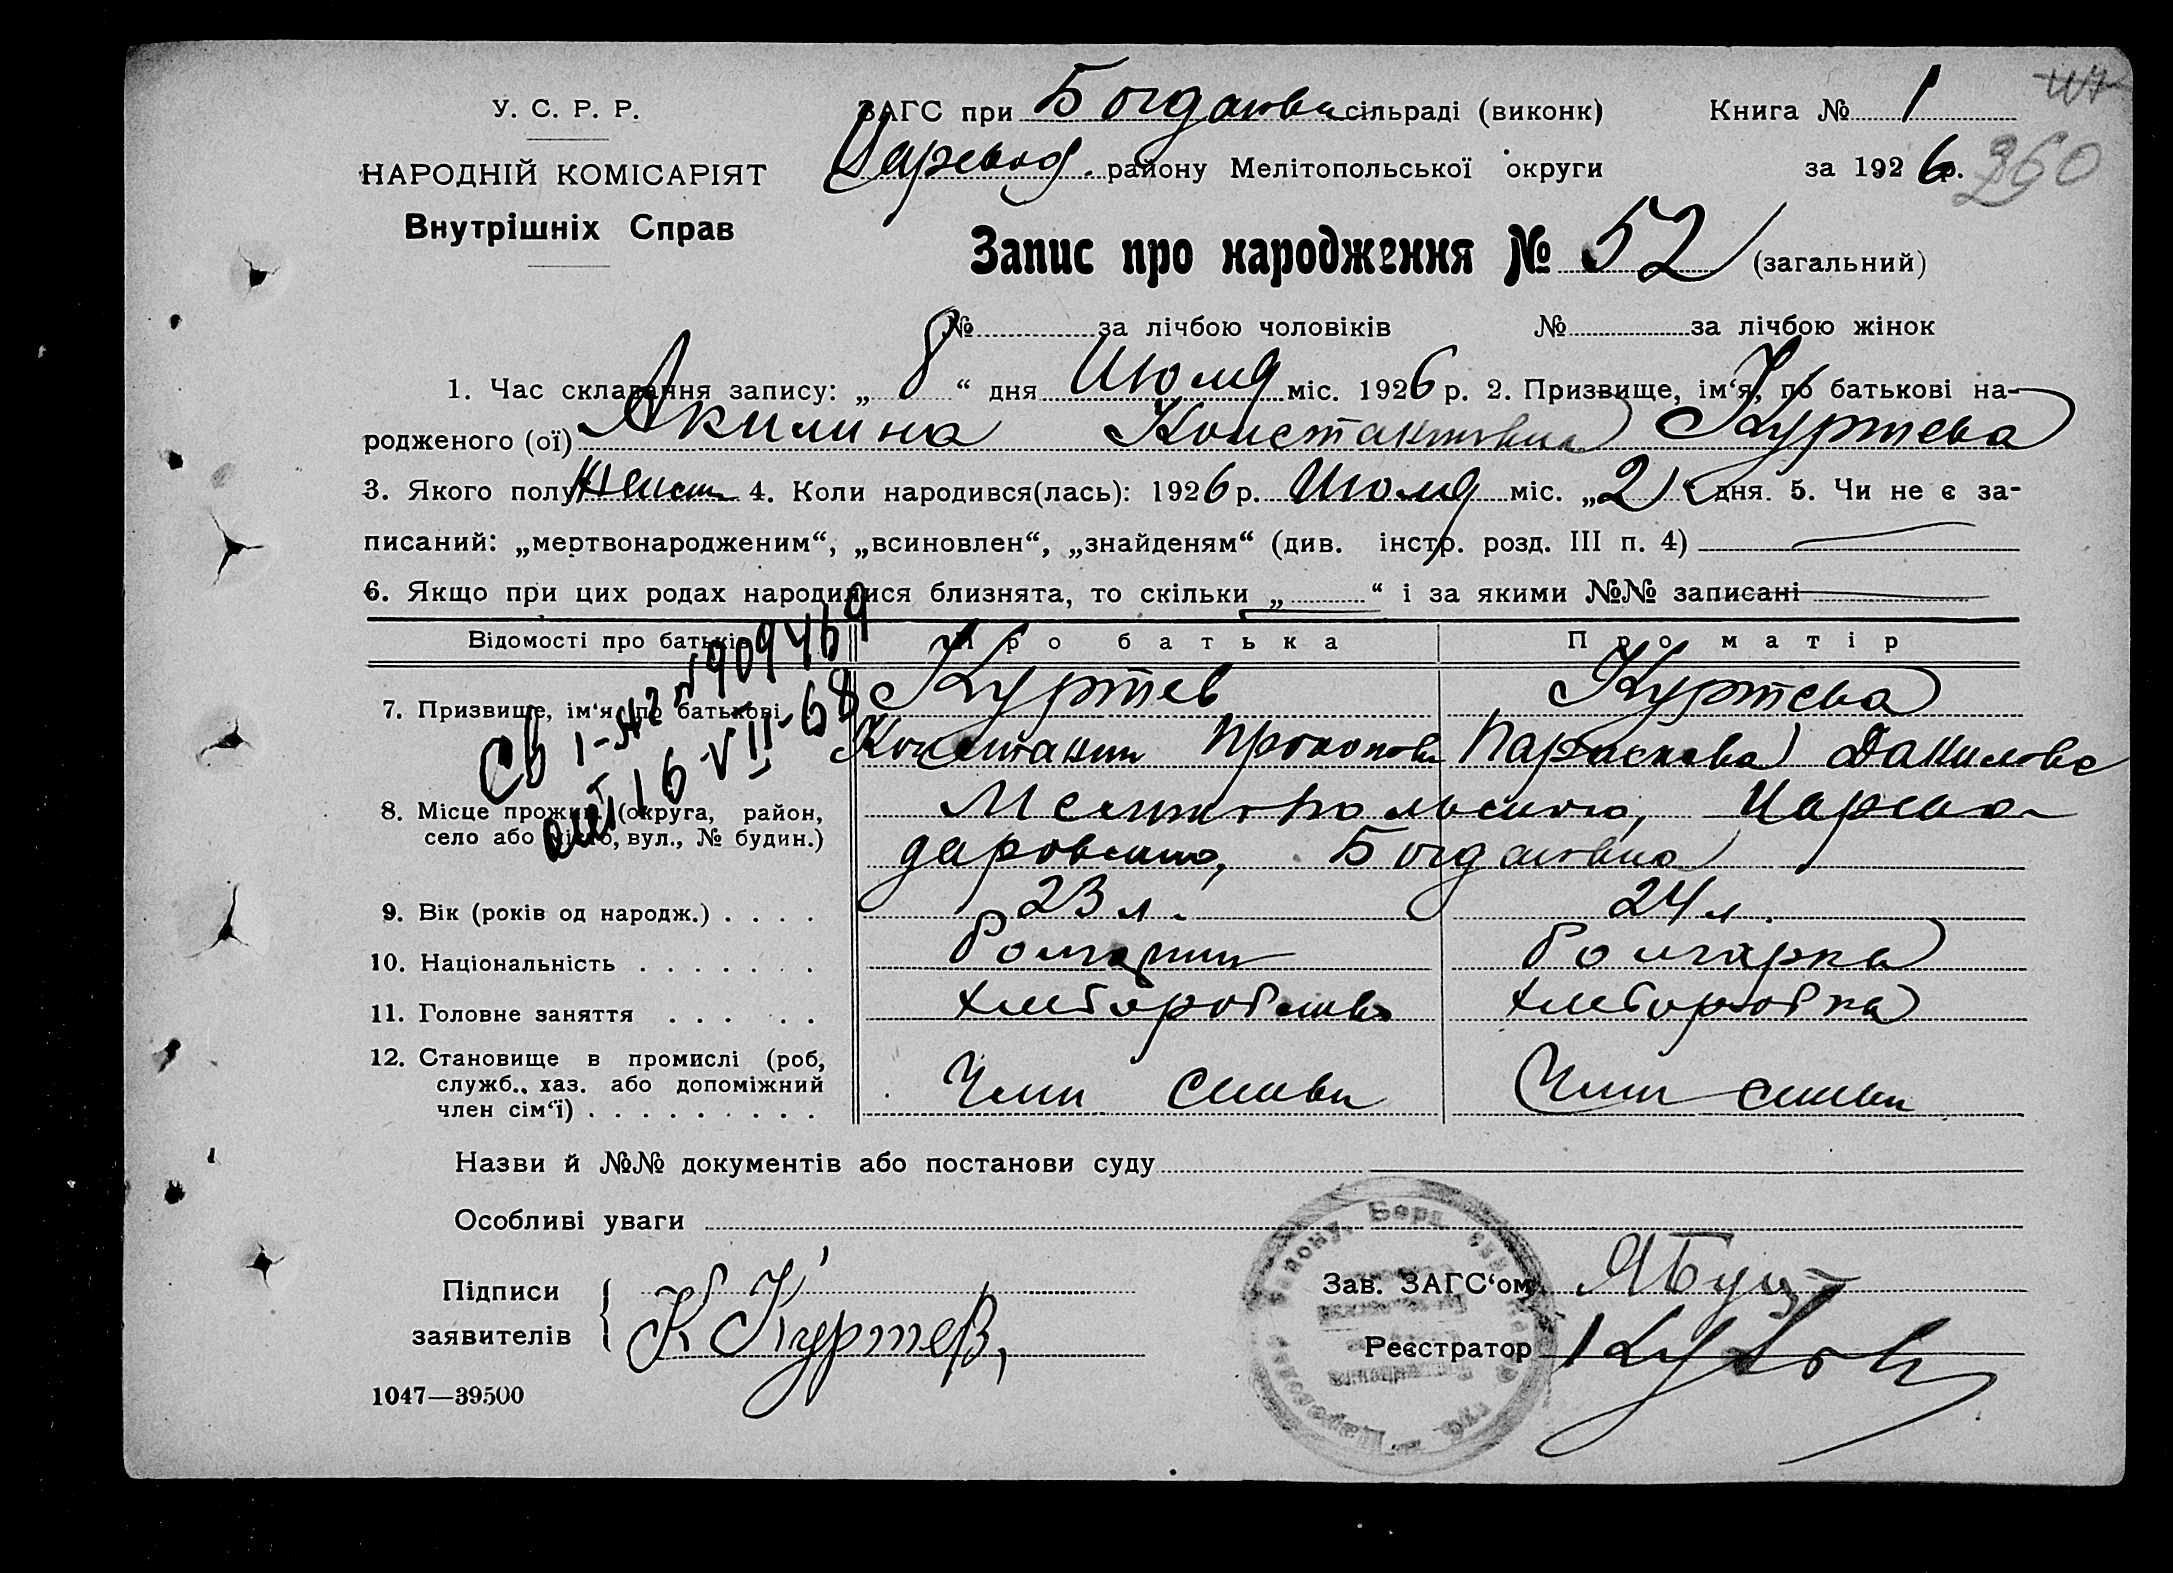 У. С. Р. Р.
НАРОДНІЙ КОМІСАРІЯТ
Внутрішніх Справ
ЗАГС при Богдановск сільраді (виконк)
Царевод. району Мелітопольської округи
Книга № 1
за 1926 р.
260
Запис про народження № 52 (загальний)
№ за лічбою чоловіків № за лічбою жінок
1. Час складання запису: „ 8 “ дня Июля міс. 1926 р. 2. Призвище, ім‘я, по батькові на-
родженого (ої) Акилина Константиновна Куртева
3. Якого полу Женск 4. Коли народився(лась): 1926 р. Июля міс. „2“ дня. 5. Чи не є за-
писаний: „мертвонародженим“, „всиновлен“, „знайденям“ (див. інстр. розд. III п. 4)
6. Якщо при цих родах народилися близнята, то скільки „ “ і за якими №№ записані
Відомості про батьків Про батька Про матір
7. Призвище, ім‘я, по батькові Куртев Куртева
Константин Прокопов Параскева Данилова
8. Місце прожив. (округа, район, Мелитопольского, Царево-
село або місто, вул., № будин.) даровского, Богдановка
СВ I-ЯГ № 909469
от 16-VII-68
9. Вік (років од народж.) 23 л. 24 л.
10. Національність болгарин болгарка
11. Головне заняття хлеборобство хлеборобка
12. Становище в промислі (роб,
служб., хаз. або допоміжний Член семьи Член семьи
член сім‘ї)
Назви й №№ документів або постанови суду
Особливі уваги
Підписи
заявителів К Куртев,
Зав. ЗАГС‘ом
Реєстратор
1047—39500